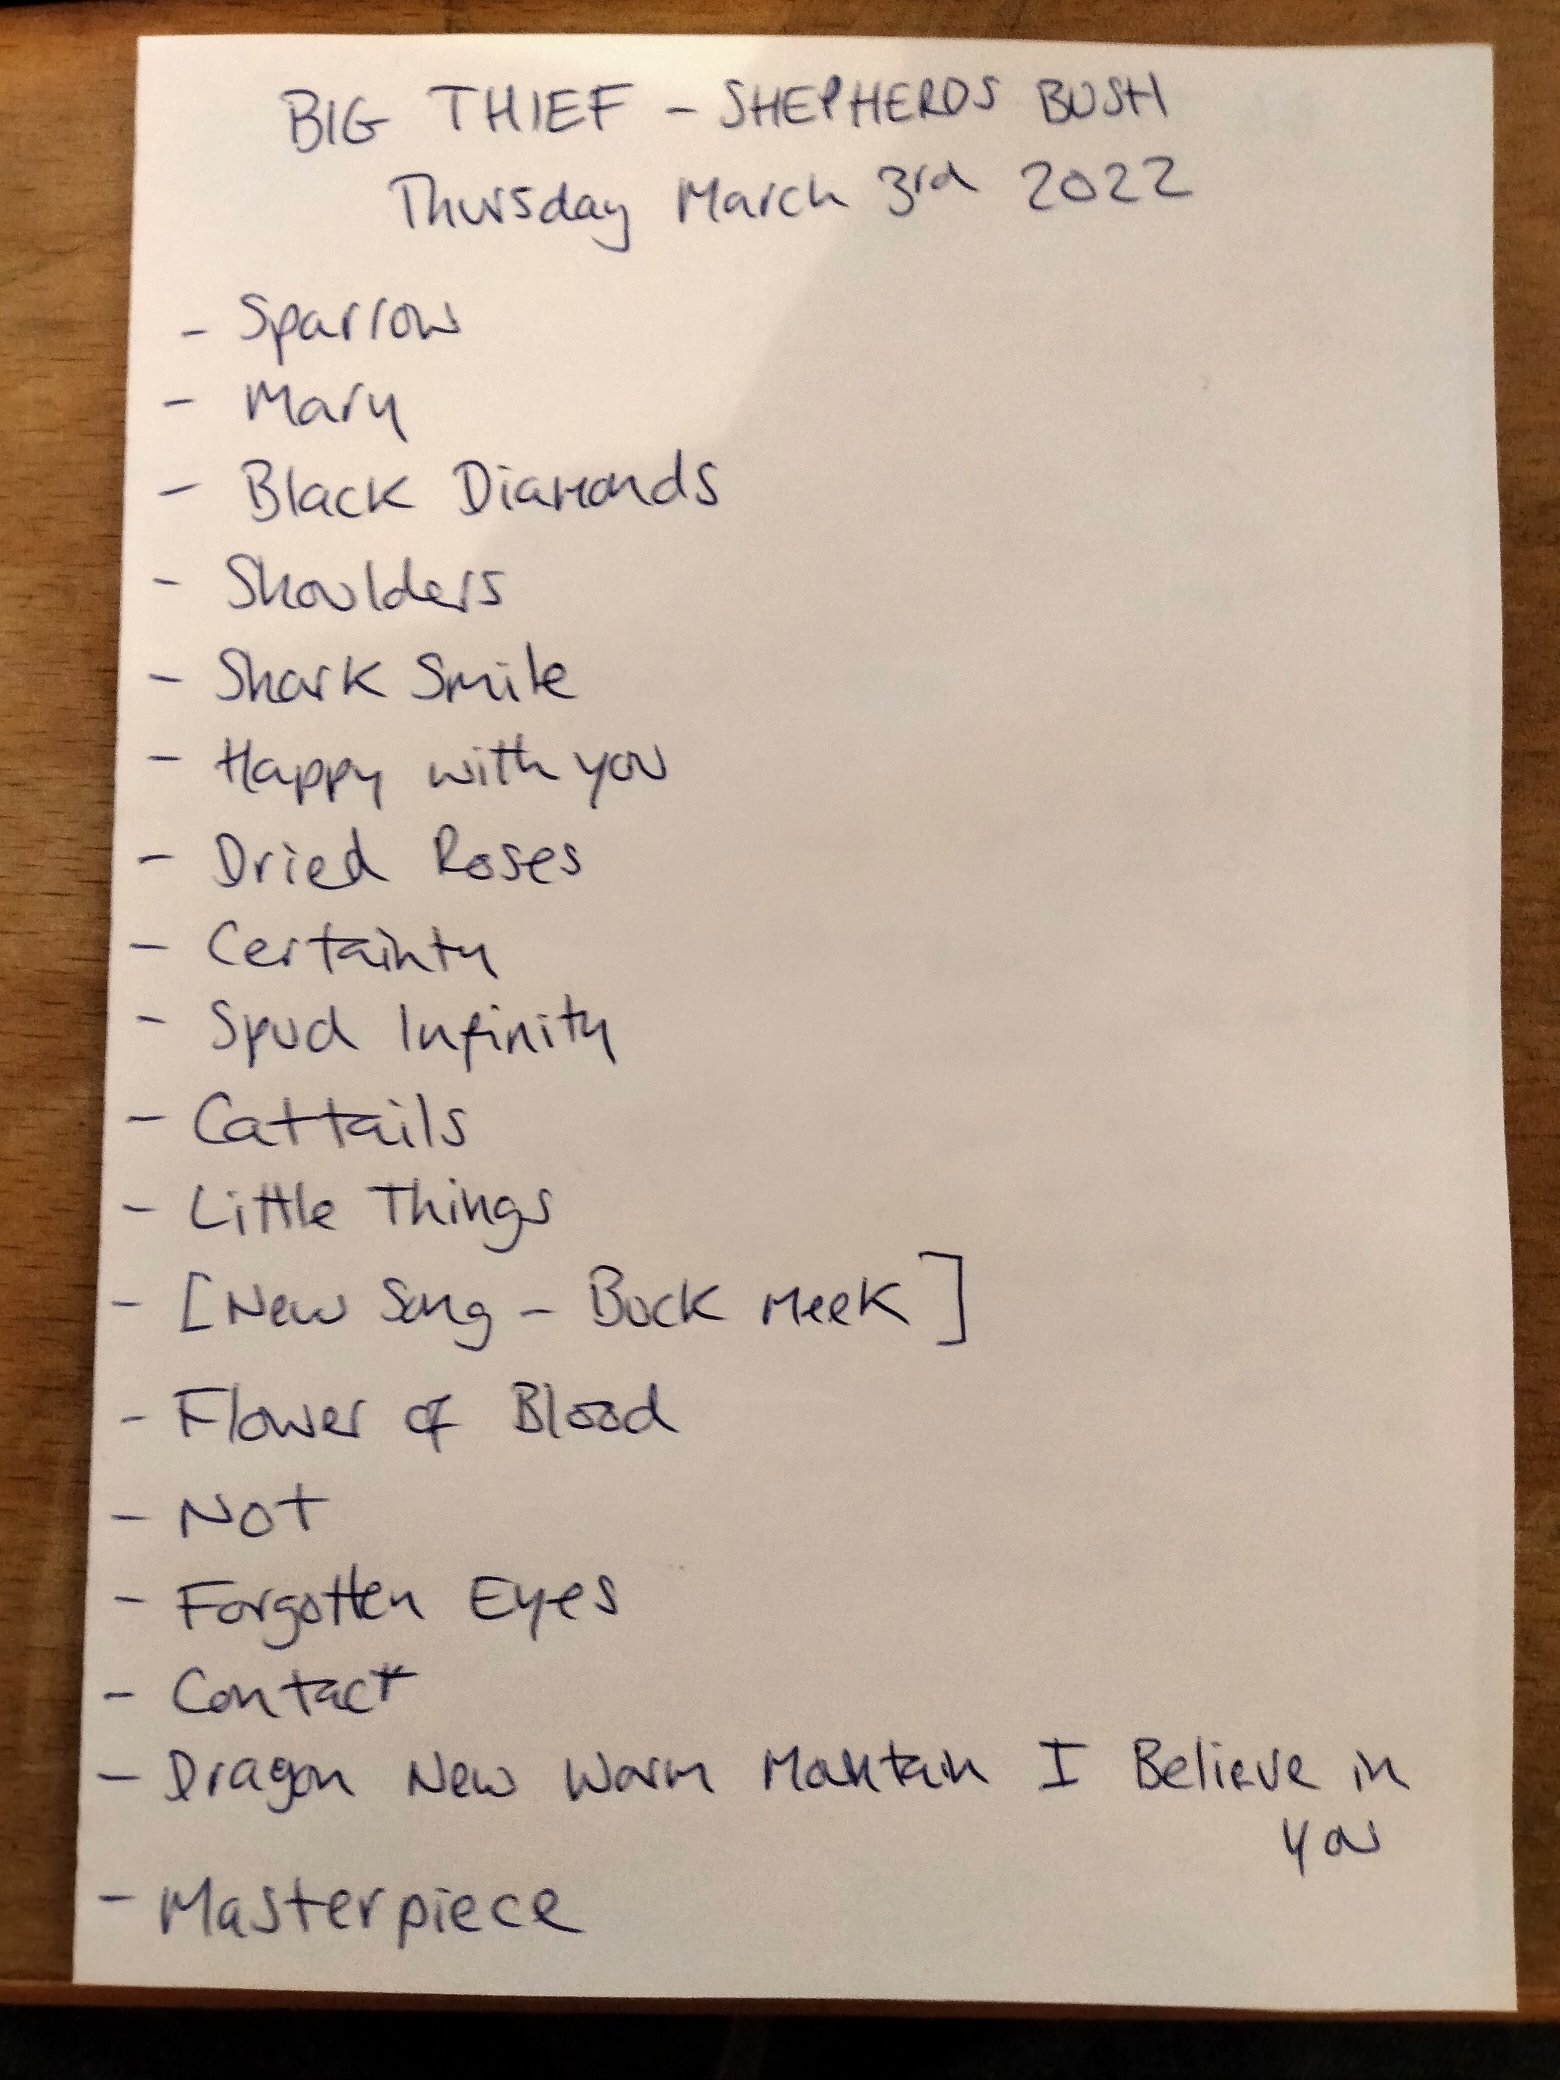 BIG THIEF - SHEPHERDS BUSH
Thursday March 3rd 2022
- Sparrow
- Mary
- Black Diamonds
- Shoulders
- Shark Smile
- Happy with you
- Dried Roses
- Certainty
- Spud Infinity
- Cattails
- Little Things
- [New Song - Buck Meek]
- Flower of Blood
- Not
- Forgotten Eyes
- Contact
- Dragon New Warm Mountain I Believe in
you
- Masterpiece